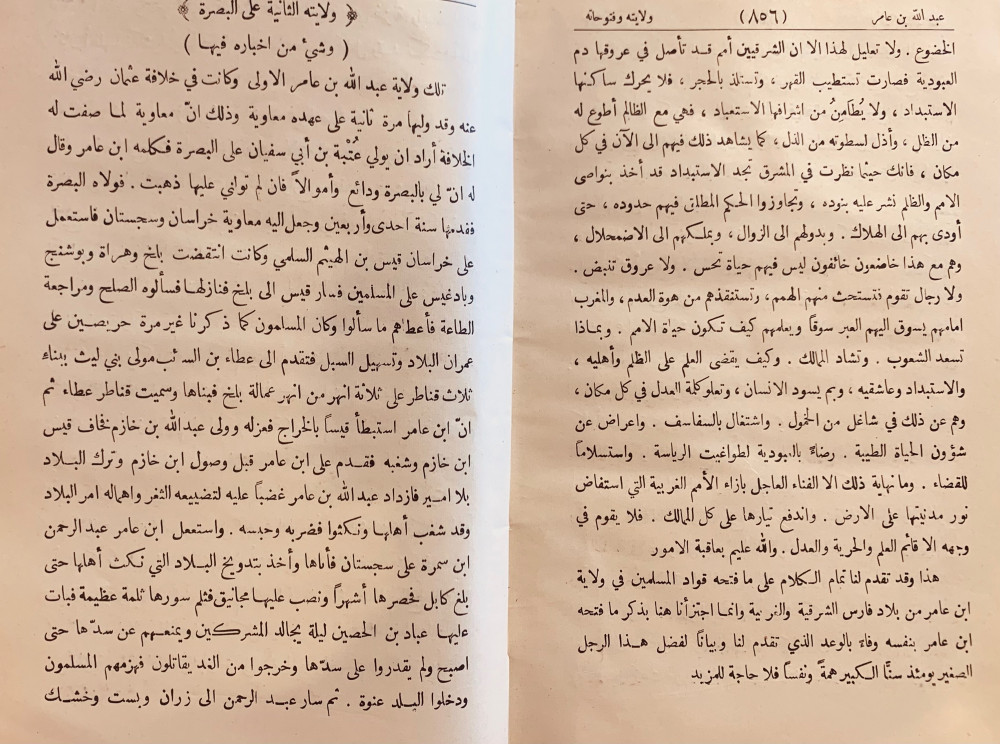 عبد الله بن عامر (٨٥٦) ولايته وفتوحاته
الخضوع . ولا تعليل لهذا الا ان الشرقيين أمم قد تأصل في عروقها دم
العبودية فصارت تستطيب القهر ، وتستلذ بالحجر ، فلا يحرك ساكنها
الاستبداد ، ولا يُطَامِنُ من اشرافها الاستعباد ، فهي مع الظالم أطوع له
من الظل ، وأذل لسطوته من الذل ، كما يشاهد ذلك فيهم الى الآن في كل
مكان ، فانك حيثما نظرت في المشرق تجد الاستبداد قد أخذ بنواصي
الامم والظلم نشر عليه بنوده ، وتجاوزوا الحكم المطلق فيهم حدوده ، حتى
أودى بهم الى الهلاك . وبدولهم الى الزوال ، وبملكهم الى الاضمحلال ،
وهم مع هذا خاضعون خائفون ليس فيهم حياة تحس . ولا عروق تنبض .
ولا رجال تقوم فتستحث منهم الهمم ، وتستنقذهم من هوة العدم ، والمغرب
امامهم يسوق اليهم العبر سوقاً ويعلمهم كيف تكون حياة الامم . وبماذا
تسعد الشعوب . وتشاد الممالك . وكيف يقضى العلم على الظلم وأهليه ،
والاستبداد وعاشقيه ، وبم يسود الانسان ، وتعلو كلمة العدل في كل مكان ،
وهم عن ذلك في شاغل من الخمول . واشتغال بالسفاسف . واعراض عن
شؤون الحياة الطيبة . رضاءً بالعبودية لطواغيت الرياسة . واستسلاماً
للقضاء . وما نهاية ذلك الا الفناء العاجل بازاء الأمم الغربية التي استفاض
نور مدنيتها على الارض . واندفع تيارها على كل الممالك . فلا يقوم في
وجهه الا قائم العلم والحرية والعدل . والله عليم بعاقبة الامور
هذا وقد تقدم لنا تمام الكلام على ما فتحه قواد المسلمين في ولاية
ابن عامر من بلاد فارس الشرقية والغربية وانما اجتزأنا هنا بذكر ما فتحه
ابن عامر بنفسه وفاءً بالوعد الذي تقدم لنا وبياناً لفضل هذا الرجل
الصغير يومئذ سنًّا الكبير همةً ونفساً فلا حاجة للمزيد
﴿ ولايته الثانية على البصرة ﴾
( وشيء من اخباره فيها )
تلك ولاية عبد الله بن عامر الاولى وكانت في خلافة عثمان رضي الله
عنه وقد وليها مرة ثانية على عهده معاوية وذلك انّ معاوية لما صفت له
الخلافة أراد ان يولي عُتْبة بن أبي سفيان على البصرة فكلمه ابن عامر وقال
له انّ لي بالبصرة ودائع وأموالاً فان لم تولني عليها ذهبت . فولاه البصرة
فقدمها سنة احدى وأربعين وجعل اليه معاوية خراسان وسجستان فاستعمل
على خراسان قيس بن الهيثم السلمي وكانت انتقضت بلخ وهراة وبوشنج
وبادغيس على المسلمين فسار قيس الى بلخ فنازلها فسألوه الصلح ومراجعة
الطاعة فأعطاهم ما سألوا وكان المسلمون كما ذكرنا غير مرة حريصين على
عمران البلاد وتسهيل السبل فتقدم الى عطاء بن السائب مولى بني ليث ببناء
ثلاث قناطر على ثلاثة انهر من انهر عمالة بلخ فبناها وسميت قناطر عطاء ثم
انّ ابن عامر استبطأ قيساً بالخراج فعزله وولى عبد الله بن خازم فخاف قيس
ابن خازم وشغبه فقدم على ابن عامر قبل وصول ابن خازم وترك البلاد
بلا امير فازداد عبد الله بن عامر غضباً عليه لتضييعه الثغر واهماله امر البلاد
وقد شغب أهلها ونكثوا فضربه وحبسه . واستعمل ابن عامر عبد الرحمن
ابن سمرة على سجستان فأتاها وأخذ بتدويخ البلاد التي نكث أهلها حتى
بلغ كابل فحصرها أشهراً ونصب عليها مجانيق فثلم سورها ثلمة عظيمة فبات
عليها عباد بن الحصين ليلة يجالد المشركين ويمنعهم عن سدّها حتى
اصبح ولم يقدروا على سدّها وخرجوا من الغد يقاتلون فهزمهم المسلمون
ودخلوا البلد عنوة . ثم سار عبد الرحمن الى زران وبست وخشك